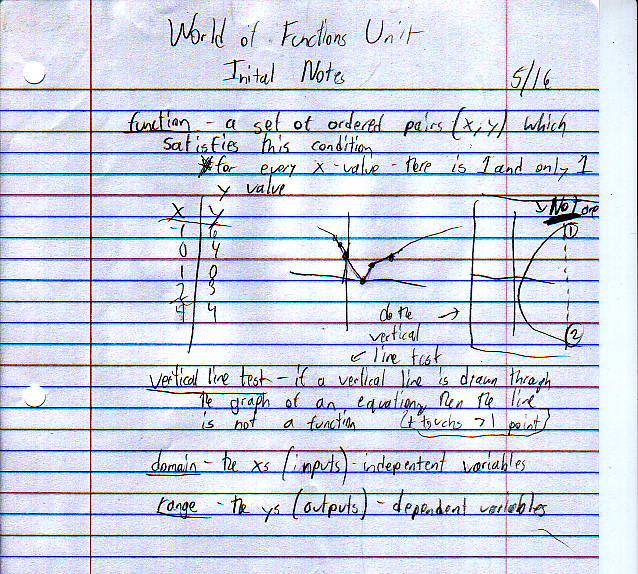 World of Functions Unit
Inital Notes
5/16
function - a set of ordered pairs (x, y) which
satisfies this condition
*for every x-value - there is 1 and only 1
y value
x y
-1 6
0 4
1 0
2 3
4 4
Not one
1
2
do the
vertical
line test
vertical line test - if a vertical line is drawn through
the graph of an equation, then the line
is not a function (it touchs >1 point)
domain - the xs (inputs) - indepentent variables
range - the ys (outputs) - dependent variables